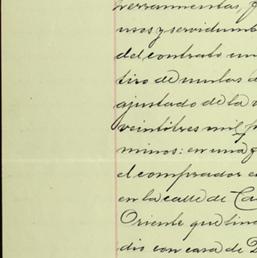 herramientas,
usos y servidumb
del contrato un
tiro de mulas d
ajustado de la v
veintitres mil p
minos: en una
el comprador e
en la calle de Ca
Oriente que lin
dio con casa de D